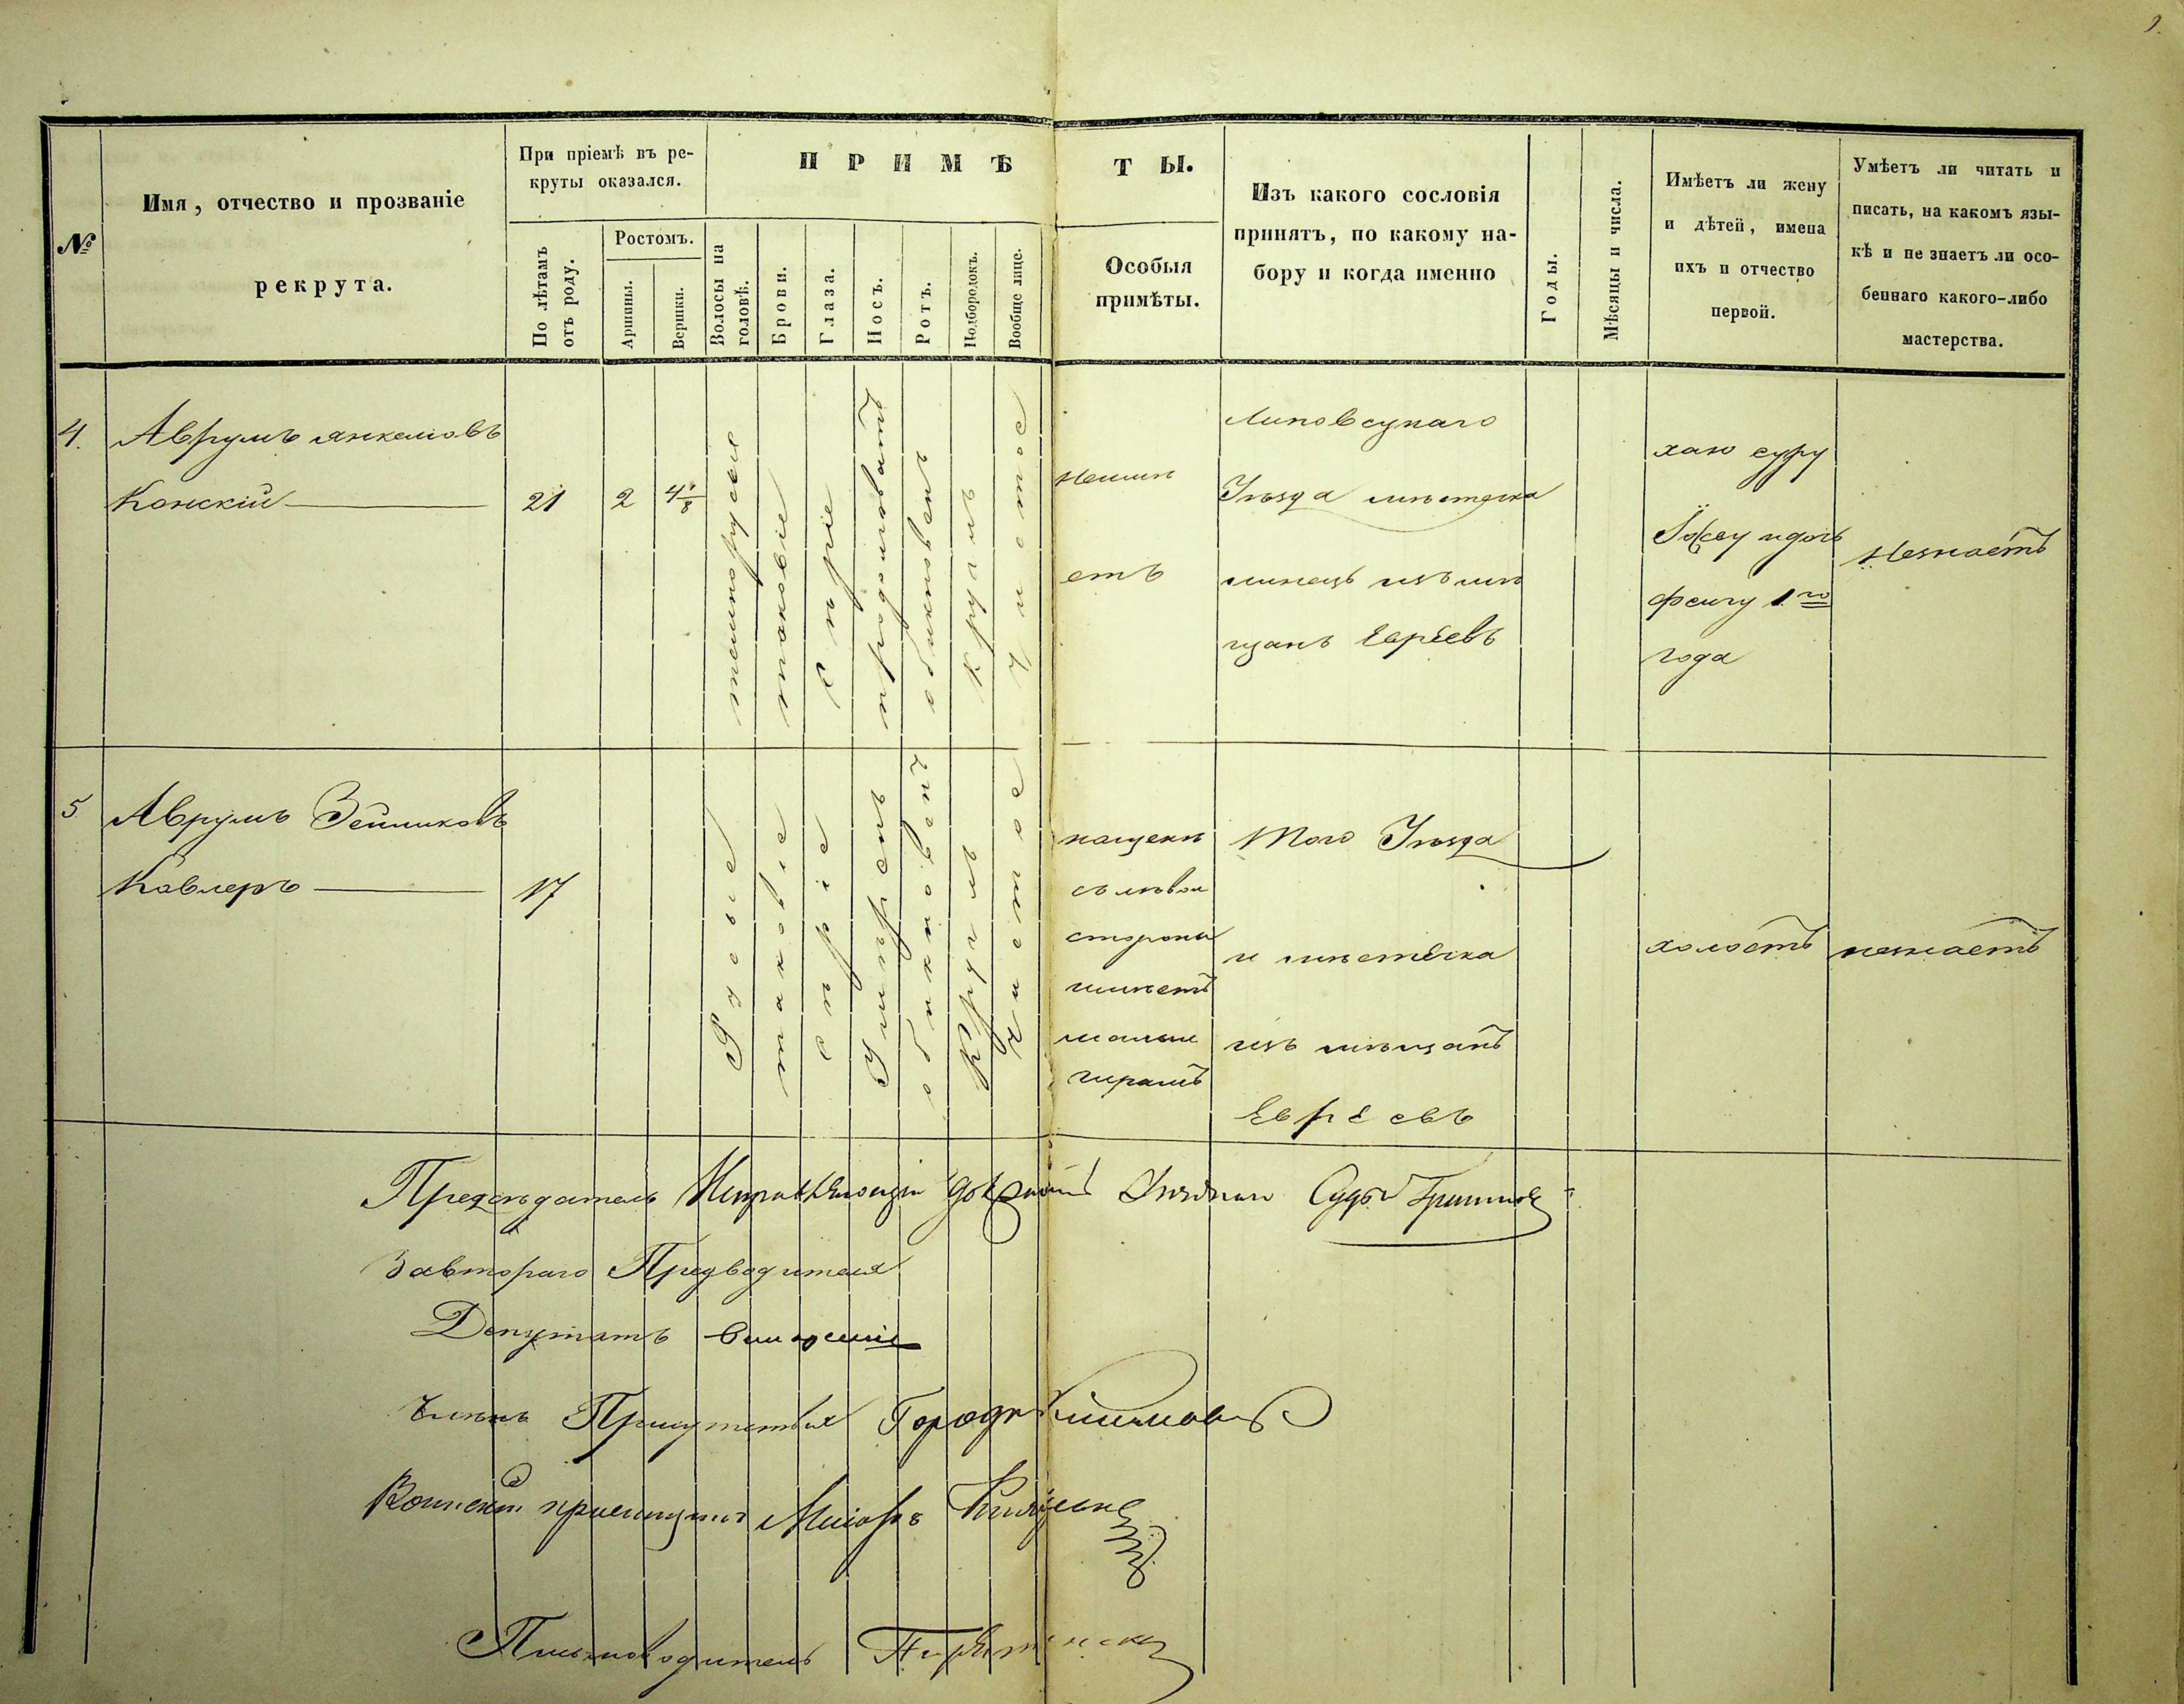 9.
№
Имя, отчество и прозваніе
рекрута.
При пріемѣ въ ре-
круты оказался.
По лѣтамъ
отъ роду.
Ростомъ.
Аршины.
Вершки.
ПРИМѢ
ТЫ.
Волосы на
головѣ.
Брови.
Глаза.
Носъ.
Ротъ.
Подбородокъ.
Вообще лице.
Особыя
примѣты.
Изъ какого сословія
принятъ, по какому на-
бору и когда именно
Годы.
Мѣсяцы и числа.
Имѣетъ ли жену
и дѣтей, имена
ихъ и отчество
первой.
Умѣетъ ли читать и
писать, на какомъ язы-
кѣ и не знаетъ ли осо-
беннаго какого-либо
мастерства.
4.
Аврумъ Янкелiовъ
Конскій
21
2
4 1/8
темнорусыя
таковіе
Сѣріе
продолговатъ
обыкновенъ
Круглъ
Чистое
неимѣ
етъ
Липовецкаго
Уѣзда мѣстечка
изъ мѣ
щанъ Евреевъ
хаю суру
и дочь
фейгу 1го
года
Незнаетъ
5
Аврумъ Зейликовъ
Кавлеръ
17
Русые
таковіе
сѣріе
Умѣренъ
обыкновенъ
Круглъ
Чистое
нащекѣ
съ лѣвой
стороны
имѣетъ
малый
шрамъ
Того Уѣзда
и мѣстечка
изъ мѣщанъ
Евреевъ
холостъ
незнаетъ
Предсѣдатель Исправляющій должность Уѣзднаго Судьи
Завтораго Предводителя
Депутатъ
Членъ Присутствія
Воинскій пріемщикъ Маіоръ
Письмоводитель